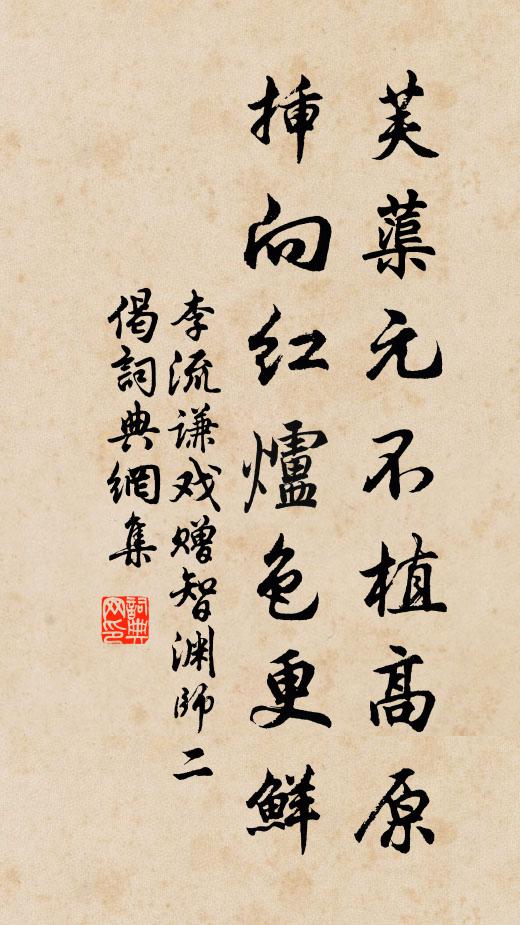 芙蕖元不植高原
挿向红爐色更鮮
李流谦戏赠智渊師二
偈詞典網集
詞典网印